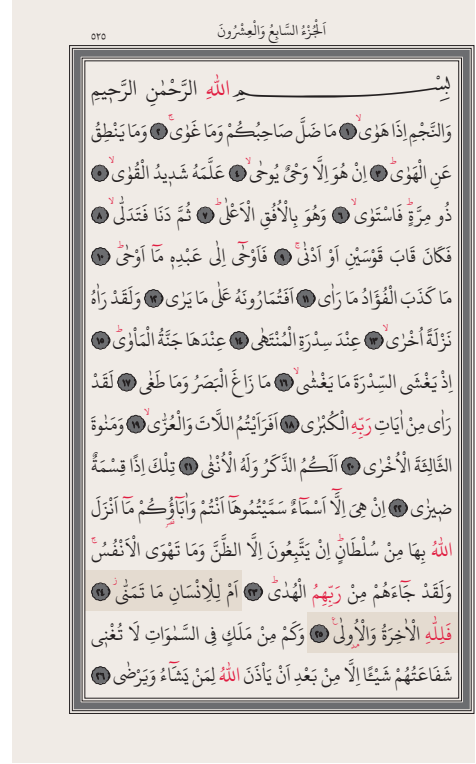 اَلْجُزْءُ السَّابِعُ وَالْعِشْرُونَ
٥٢٥
بِسْمِ اللهِ الرَّحْمٰنِ الرَّحٖيمِ
وَالنَّجْمِ اِذَا هَوٰىۙ ﴿١﴾ مَا ضَلَّ صَاحِبُكُمْ وَمَا غَوٰىۚ ﴿٢﴾ وَمَا يَنْطِقُ
عَنِ الْهَوٰىؕ ﴿٣﴾ اِنْ هُوَ اِلَّا وَحْىٌ يُوحٰىۙ ﴿٤﴾ عَلَّمَهُ شَدٖيدُ الْقُوٰىۙ ﴿٥﴾
ذُو مِرَّةٍؕ فَاسْتَوٰىۙ ﴿٦﴾ وَهُوَ بِالْاُفُقِ الْاَعْلٰىؕ ﴿٧﴾ ثُمَّ دَنَا فَتَدَلّٰىۙ ﴿٨﴾
فَكَانَ قَابَ قَوْسَيْنِ اَوْ اَدْنٰىۚ ﴿٩﴾ فَاَوْحٰٓى اِلٰى عَبْدِهٖ مَٓا اَوْحٰىؕ ﴿١٠﴾
مَا كَذَبَ الْفُؤَادُ مَا رَاٰى ﴿١١﴾ اَفَتُمَارُونَهُ عَلٰى مَا يَرٰى ﴿١٢﴾ وَلَقَدْ رَاٰهُ
نَزْلَةً اُخْرٰىۙ ﴿١٣﴾ عِنْدَ سِدْرَةِ الْمُنْتَهٰى ﴿١٤﴾ عِنْدَهَا جَنَّةُ الْمَاْوٰىؕ ﴿١٥﴾
اِذْ يَغْشَى السِّدْرَةَ مَا يَغْشٰىۙ ﴿١٦﴾ مَا زَاغَ الْبَصَرُ وَمَا طَغٰى ﴿١٧﴾ لَقَدْ
رَاٰى مِنْ اٰيَاتِ رَبِّهِ الْكُبْرٰى ﴿١٨﴾ اَفَرَاَيْتُمُ اللَّاتَ وَالْعُزّٰىۙ ﴿١٩﴾ وَمَنٰوةَ
الثَّالِثَةَ الْاُخْرٰى ﴿٢٠﴾ اَلَكُمُ الذَّكَرُ وَلَهُ الْاُنْثٰى ﴿٢١﴾ تِلْكَ اِذًا قِسْمَةٌ
ضٖيزٰى ﴿٢٢﴾ اِنْ هِىَ اِلَّٓا اَسْمَٓاءٌ سَمَّيْتُمُوهَٓا اَنْتُمْ وَاٰبَٓاؤُكُمْ مَٓا اَنْزَلَ
اللهُ بِهَا مِنْ سُلْطَانٍؕ اِنْ يَتَّبِعُونَ اِلَّا الظَّنَّ وَمَا تَهْوَى الْاَنْفُسُۚ
وَلَقَدْ جَٓاءَهُمْ مِنْ رَبِّهِمُ الْهُدٰىؕ ﴿٢٣﴾ اَمْ لِلْاِنْسَانِ مَا تَمَنّٰىؗ ﴿٢٤﴾
فَلِلّٰهِ الْاٰخِرَةُ وَالْاُو۫لٰىࣖ ﴿٢٥﴾ وَكَمْ مِنْ مَلَكٍ فِى السَّمٰوَاتِ لَا تُغْنٖى
شَفَاعَتُهُمْ شَيْئًا اِلَّا مِنْ بَعْدِ اَنْ يَاْذَنَ اللهُ لِمَنْ يَشَٓاءُ وَيَرْضٰى ﴿٢٦﴾